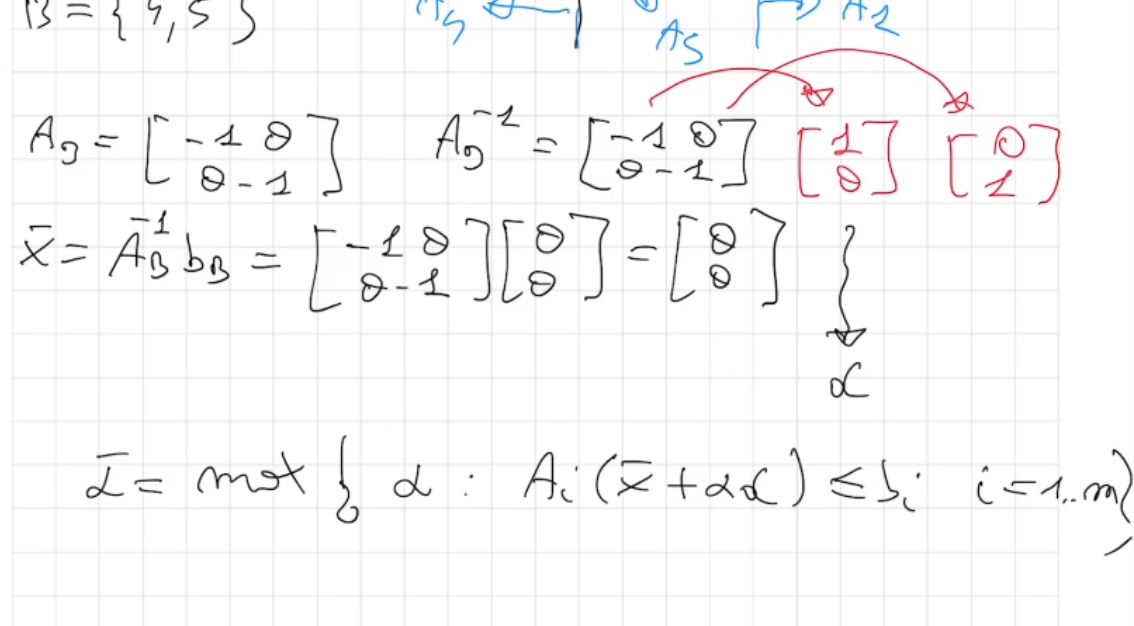 B = { 4, 5 }
A_5 A_1
A_B = [ -1 0 ; 0 -1 ] A_B^{-1} = [ -1 0 ; 0 -1 ] [ 1 ; 0 ] [ 0 ; 1 ]
x̄ = A_B^{-1} b_B = [ -1 0 ; 0 -1 ] [ 0 ; 0 ] = [ 0 ; 0 ]
d
ᾱ = max { α : A_i ( x̄ + αd ) ≤ b_i i = 1..m }